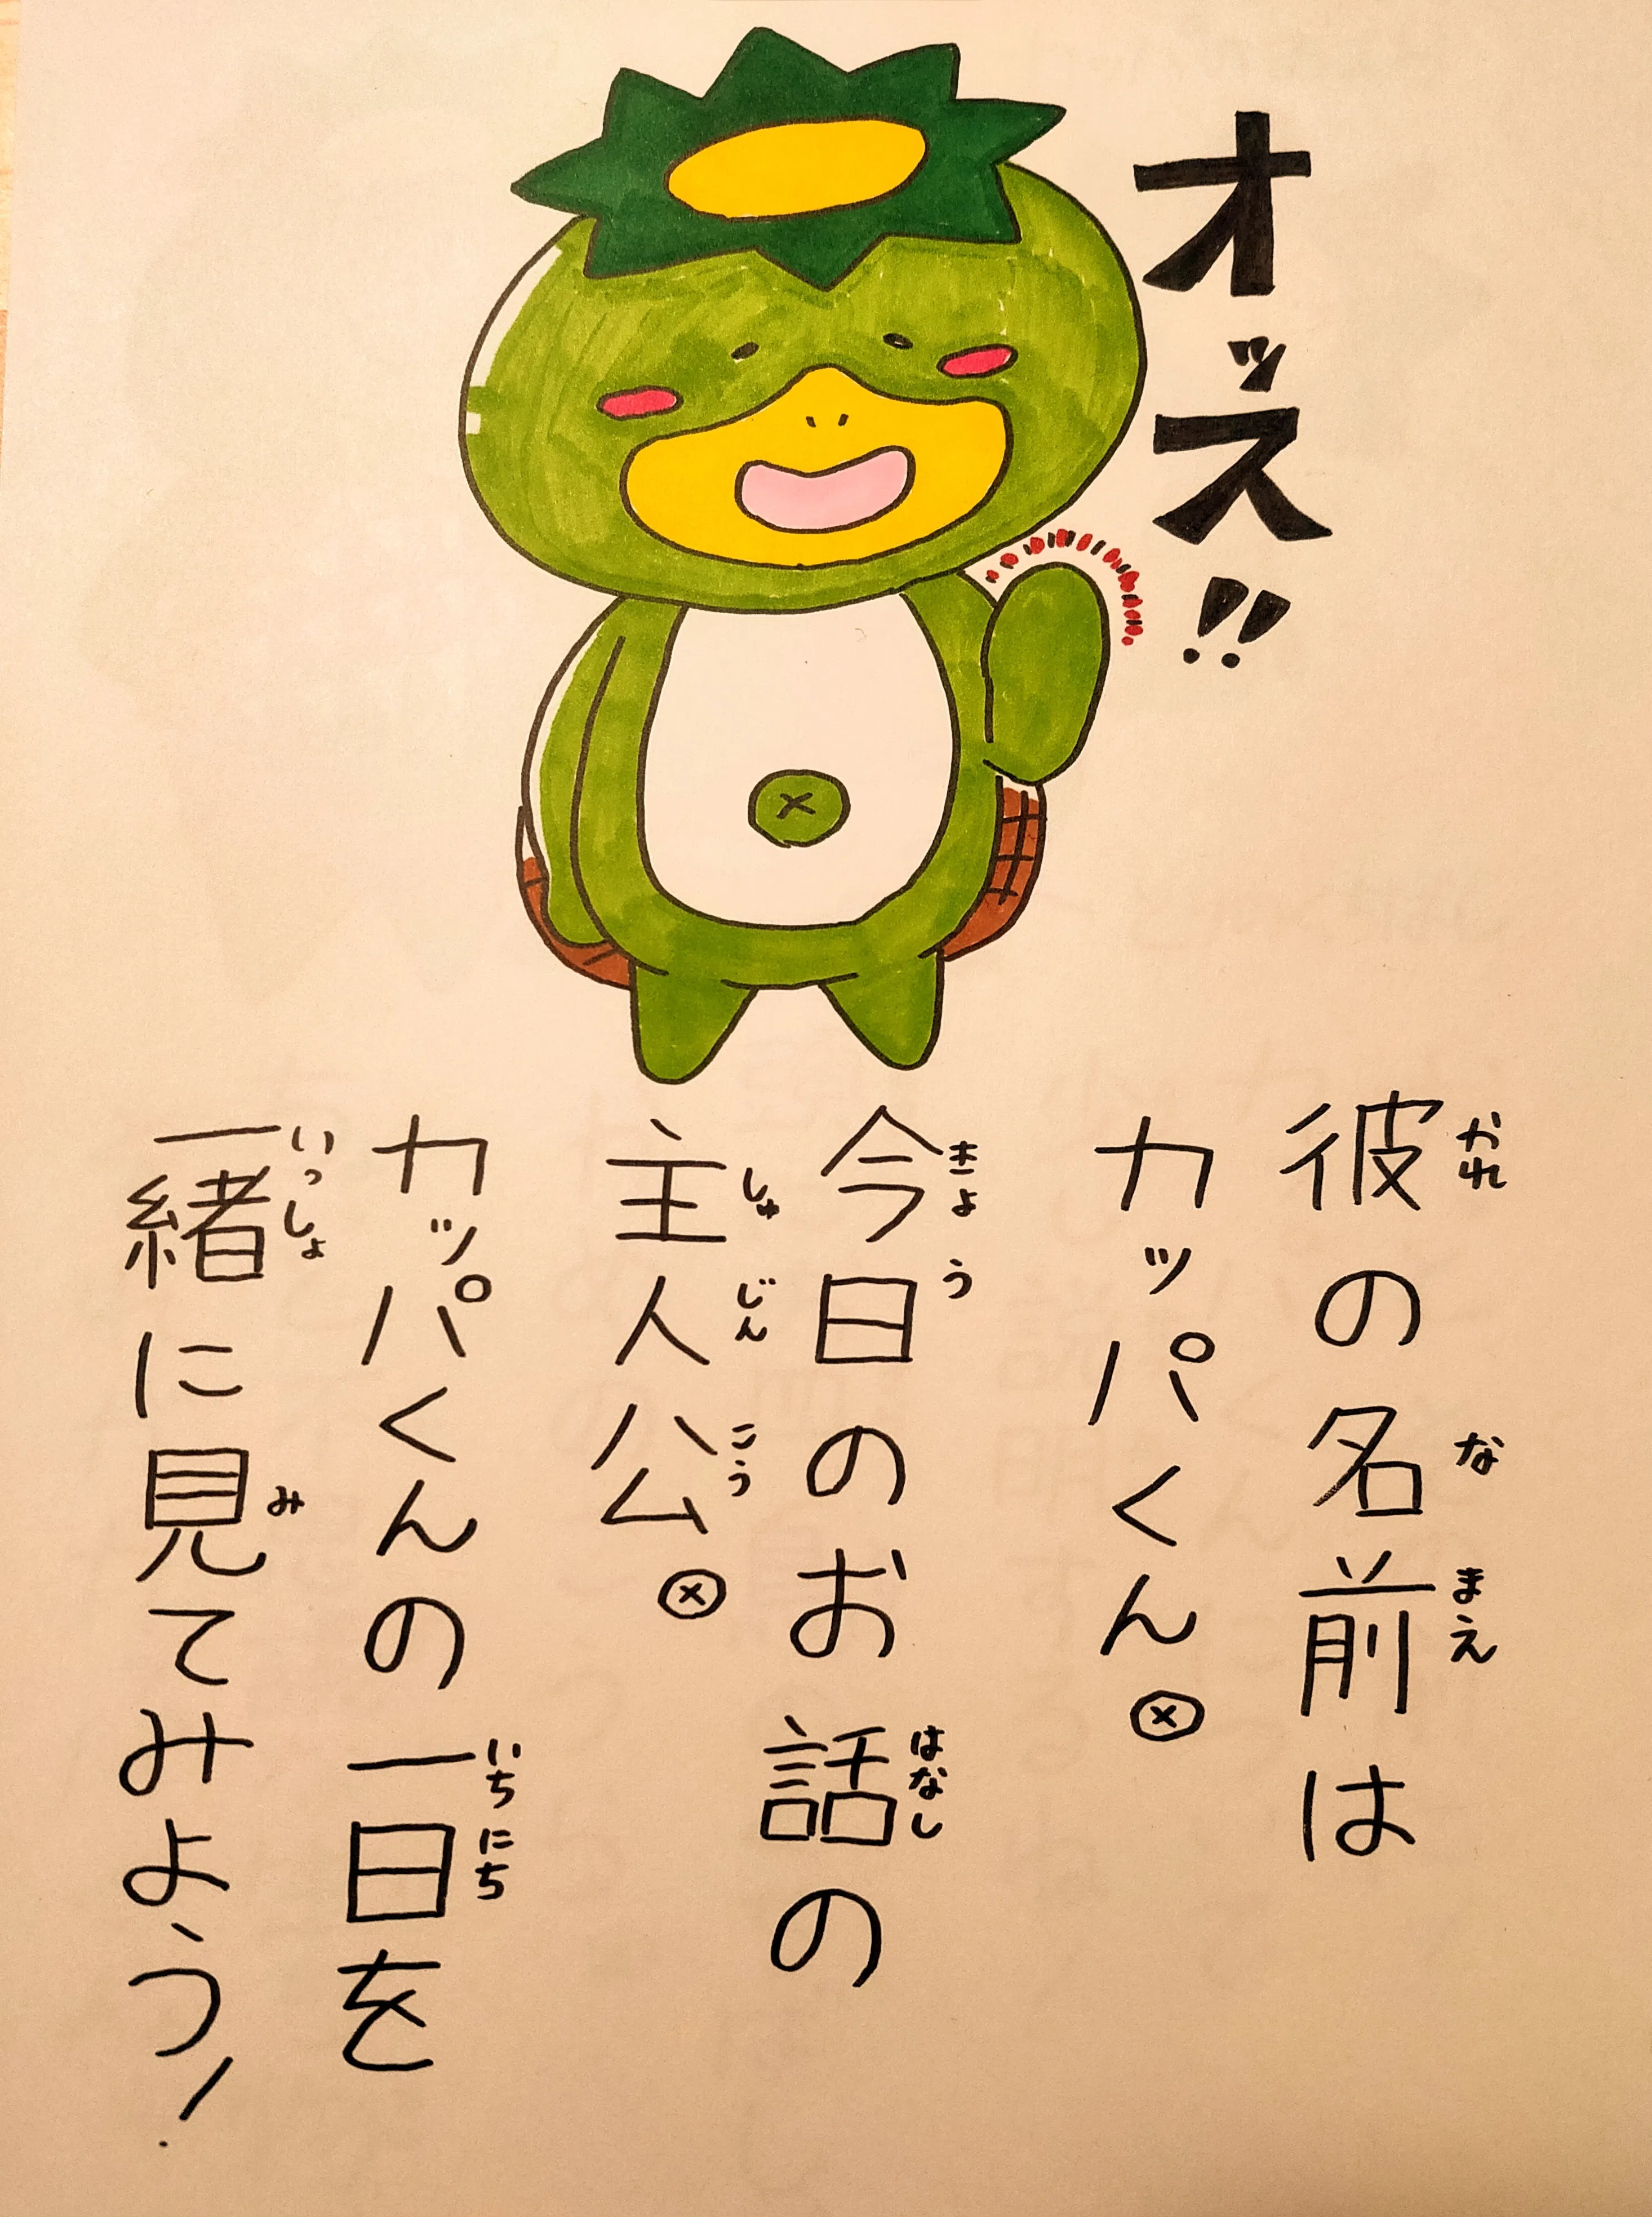 オッス!!
彼の名前は
かれ
な
まえ
カッパくん。
今日のお話の
きょう
はなし
主人公。
しゅ
じん
こう
カッパくんの一日を
いち
にち
一緒に見てみよう!
いっしょ
み